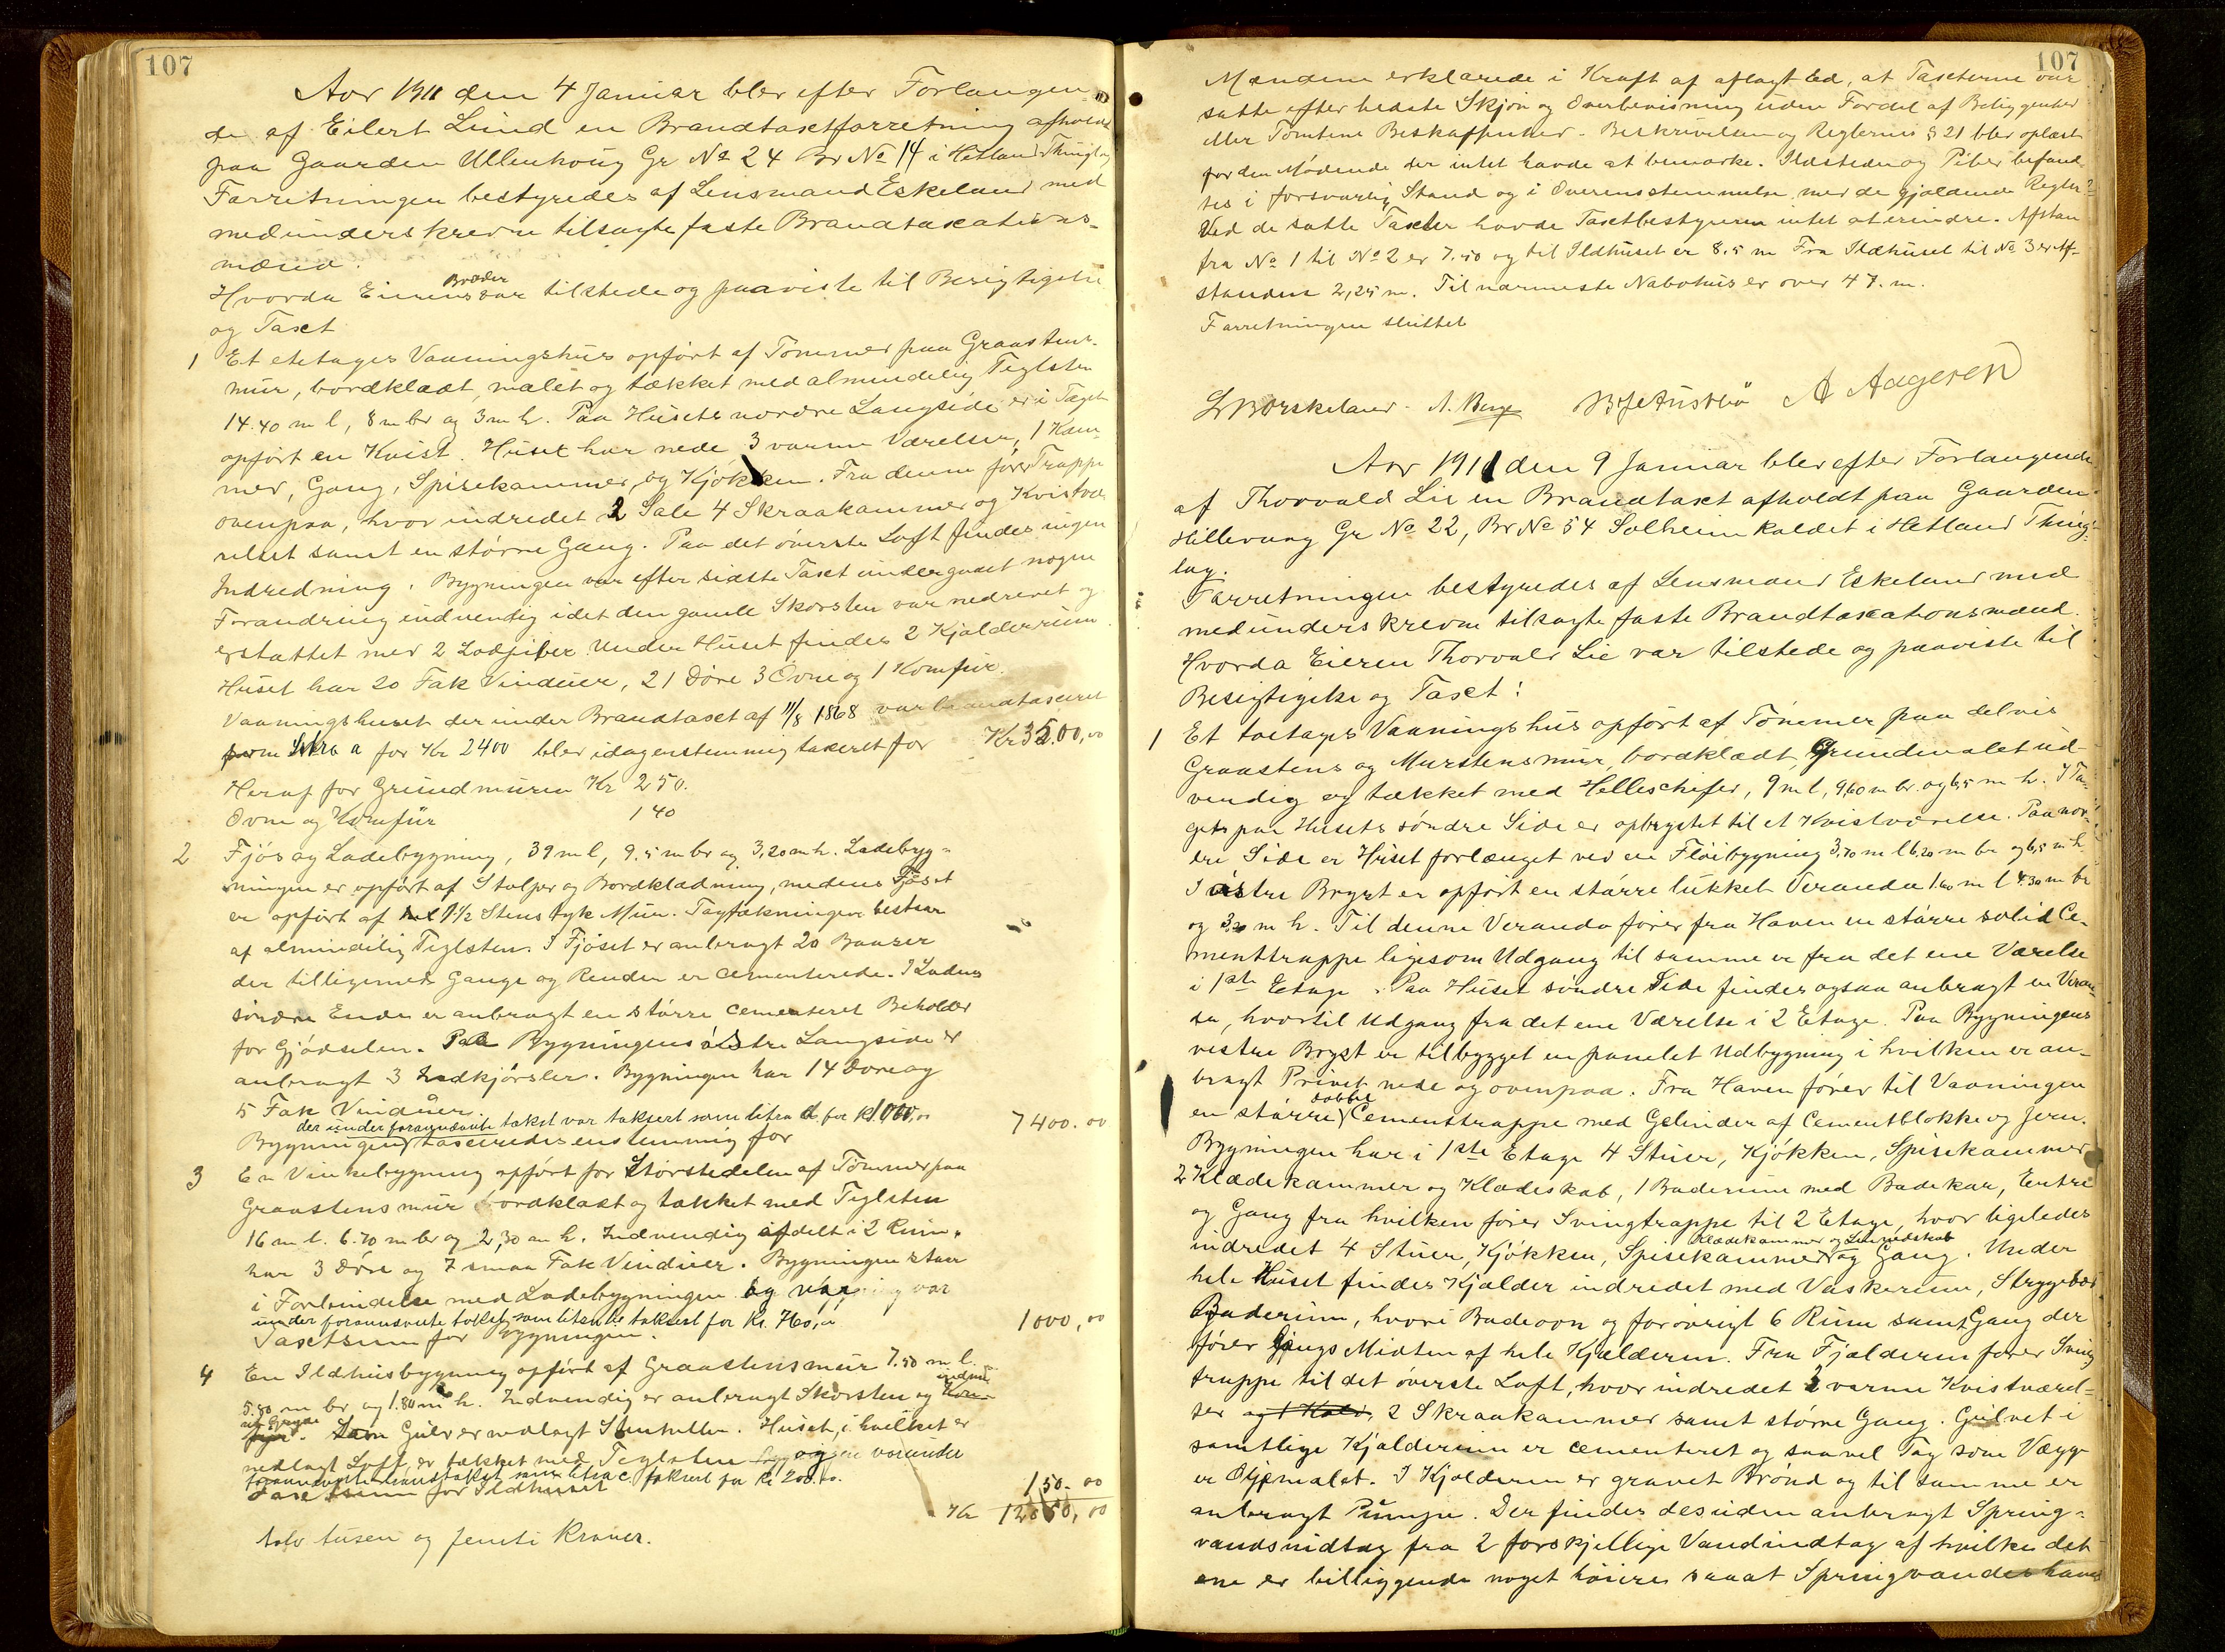 107
Aar 1911 den 4 Januar blev efter Forlangen
de af Eilert Lund en Brandtaxtforretning afholdt
paa Gaarden Ullenhoug Gr No 24 Br No 14 i Hetland Thinglag
Forretningen bestyredes af Lensmand Eskeland med
medunderskrevne tilsagte faste Brandtaxations-
mænd.
Hvorda Eierens Broder var tilstede og paaviste til Besigtigelse
og Taxt
1 Et etetages Vaaningshus opført af Tømmer paa Graastens-
mur, bordklædt, malet og tækket med almindelig Teglsten
14.40 m l, 8 m br og 3 m h. Paa Husets nordre Langside er i Taget
opført en Kvist. Huset har nede 3 varme Værelser, 1 Kam-
mer, Gang, Spisekammer og Kjøkken. Fra denne fører Trappe
ovenpaa, hvor indredet 2 Sale 4 Skraakammer og Kvistvæ-
relset samt en større Gang. Paa det øverste Loft findes ingen
Indredning. Bygningen var efter sidste Taxt undergaaet nogen
Forandring indvendig idet den gamle Skorsten var nedrevet og
erstattet med 2 Lodpiber. Under Huset findes 2 Kjælderrum
Huset har 20 Fak Vinduer, 21 Døre 3 Ovne og 1 Komfur.
Vaaningshuset der under Brandtaxt af 11/8 1868 var brandtaxeret
som Litra a for Kr 2400 blev idag enstemmig taxeret for Kr 3500,00
Heraf for Grundmuren Kr 250.
Ovne og Komfür 140
2 Fjøs og Ladebygning, 39 m l, 9.5 m br og 3,20 m h. Ladebyg-
ningen er opført af Stolper og Bordklædning, medens Fjøset
er opført af 1½ Stens tyk Mur. Tagtækningen bestaar
af almindelig Teglsten. I Fjøset er anbragt 20 Baaser
der tilligemed Gange og Render er cementerede. I Ladens
søndre Ende er anbragt en større cementeret Beholder
for Gjødselen. Paa Bygningens østre Langside er
anbragt 3 Indkjørsler. Bygningen har 14 Døre og
5 Fak Vinduer
der under forannævnte takst var taksert som litra d for kr 1000,00
Bygningen taxeredes enstemmig for 7400.00
3 En Vinkebygning opført for Størstedelen af Tømmer paa
Graastens mur bordklædt og tækket med Teglsten
16 m l. 6.70 m br og 2,30 m h. Indvendig afdelt i 2 Rum,
har 3 Døre og 7 smaa Fak Vinduer. Bygningen staar
i Forbindelse med Ladebygningen og var
under forannævnte takst som litra b taksert for kr. 760,00
Taxtsum for Bygningen. 1000,00
4 En Ildhusbygning opført af Graastensmur 7.50 m l.
5.80 m br og 1.80 m h. Indvendig er anbragt Skorsten og indmu-
ret Gryde. Som Gulv er nedlagt Stenheller. Huset, i hvilket er
nedlagt Loft, er tækket med Teglsten og var under
forannævnte brandtakst som litra c taksert for kr 200.00.
Taxtsum for Ildhuset 150.00
Kr 12050,00
tolv tusen og femti kroner.
107
Mændene erklærede i Kraft af aflagt Ed, at Taxterne var
satte efter bedste Skjøn og Overbevisning uden Fordel af Beliggenhed
eller Tomtens Beskaffenhed. Beskrivelsen og Reglernes § 21 blev oplæst
for den Mødende der intet havde at bemærke. Ildstede og Piber befand-
tes i forsvarlig Stand og i Overensstemmelse med de gjældende Regler.
Ved de satte Taxter havde Taxtbestyreren intet at erindre. Afstan
fra No 1 til No 2 er 7.50 og til Ildhuset er 8.5 m Fra Ildhuset til No 3 er Af-
standen 2,25 m. Til nærmeste Nabohus er over 47. m.
Forretningen sluttet
A. Berge A Aageren
Aar 1911 den 9 Januar blev efter Forlangende
af Thorvald Lie en Brandtaxt afholdt paa Gaarden
Hillevaag Gr No 22, Br No 54 Solheim kaldet i Hetland Thing-
lag.
Forretningen bestyredes af Lensmand Eskeland med
medunderskrevne tilsagte faste Brandtaxationsmænd.
Hvorda Eieren Thorvald Lie var tilstede og paaviste til
Besigtigelse og Taxt:
1 Et toetages Vaaningshus opført af Tømmer paa delvis
Graastens og Murstensmur, bordklædt, Grundmalet ud-
vendig og tækket med Helleschifer, 9 m l, 9,60 m br. og 6,5 m h. I Ta-
get paa Husets søndre Side er opbrystet til et Kvistværelse. Paa nor-
dre Side er Huset forlænget ved en Fløibygning 3,70 m l 6,20 m br og 6,5 m h
I østre Bryst er opført en større lukket Veranda 1.60 m l 4.30 m br
og 3,20 m h. Til denne Veranda fører fra Haven en større solid Ce-
menttrappe ligesom Udgang til samme er fra det ene Værelse
i 1ste Etage. Paa Huset søndre Side findes ogsaa anbragt en Veran-
da, hvortil Udgang fra det ene Værelse i 2 Etage. Paa Bygningens
vestre Bryst er tilbygget en panelet Udbygning i hvilken er an-
bragt Privet nede og ovenpaa. Fra Haven fører til Vaaningen
en større dobbel Cementtrappe med Gelinder af Cementblokke og Jern.
Bygningen har i 1ste Etage 4 Stuer, Kjøkken, Spisekammer
2 Klædekammer og Klædeskab, 1 Baderum med Badekar, Entre
og Gang fra hvilken fører Svingtrappe til 2 Etage, hvor ligeledes
indredet 4 Stuer, Kjøkken, Spisekammer Klædekammer og Linnedskab og Gang. Under
hele Huset findes Kjælder indredet med Vaskerum, Strygebod
Baderum, hvori Badeovn og forøvrigt 6 Rum samt Gang der
fører langs Midten af hele Kjælderen. Fra Fjælderen fører Sving
trappe til det øverste Loft, hvor indredet 2 varme Kvistværel-
ser og 1 Kold, 2 Skraakammer samt større Gang. Gulvet i
samtlige Kjælderrum er cementeret og saavel Tag som Vægge
er Oljemalet. I Kjælderen er gravet Brønd og til samme er
anbragt Pumpe. Der findes desuden anbragt Spring-
vandsindtag fra 2 forskjellige Vandindtag af hvilke det
ene er tilliggende noget høiere saaat Springvandet haves